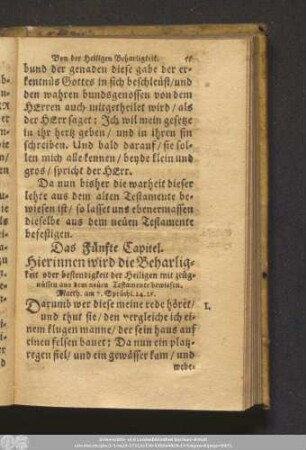 Von der Heiligen Beharligkeit.
bund der genaden diese gabe der er-
kentnüs Gottes in sich beschleüst/ und
den wahren bundsgenossen von dem
HErren auch mitgetheilet wird/ als
der HErr saget: Ich wil mein gesetze
in ihr hertz geben/ und in ihren sin
schreiben. Und bald darauf/ sie sol-
len mich alle kennen/ beyde klein und
gros/ spricht der HErr.
Da nun bisher die warheit dieser
lehre aus dem alten Testamente be-
wiesen ist/ so lasset uns ebenermassen
dieselbe aus dem neüen Testamente
befestigen.
Das Fünfte Capitel.
Hierinnen wird die Beharlig-
keit oder bestendigkeit der Heiligen mit zeüg-
nüssen aus dem neüen Testamente bewiesen.
Matth. am 7. Sprüchl. 24. 25.
Darumb wer diese meine rede höret/ 1.
und thut sie/ den vergleiche ich ei-
nem klugen manne/ der sein haus auf
einen felsen bauet: Da nun ein platz-
regen fiel/ und ein gewässer kam/ und
webe-